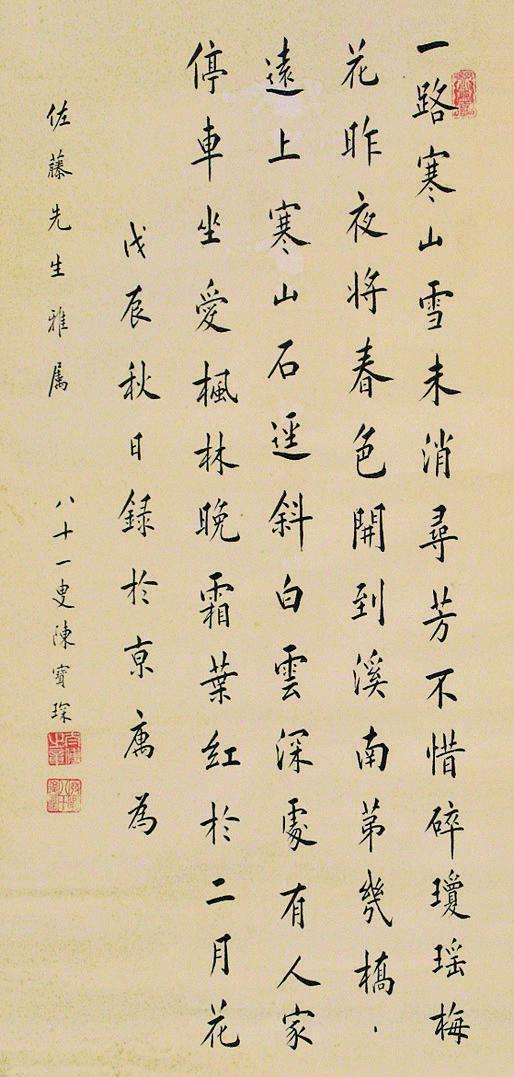 一路寒山雪未消尋芳不惜碎瓊瑤梅
花昨夜將春色開到溪南第幾橋
遠上寒山石逕斜白雲深處有人家
停車坐愛楓林晚霜葉紅於二月花
戊辰秋日録於京寓為
佐藤先生雅属
八十一叟陳寶琛